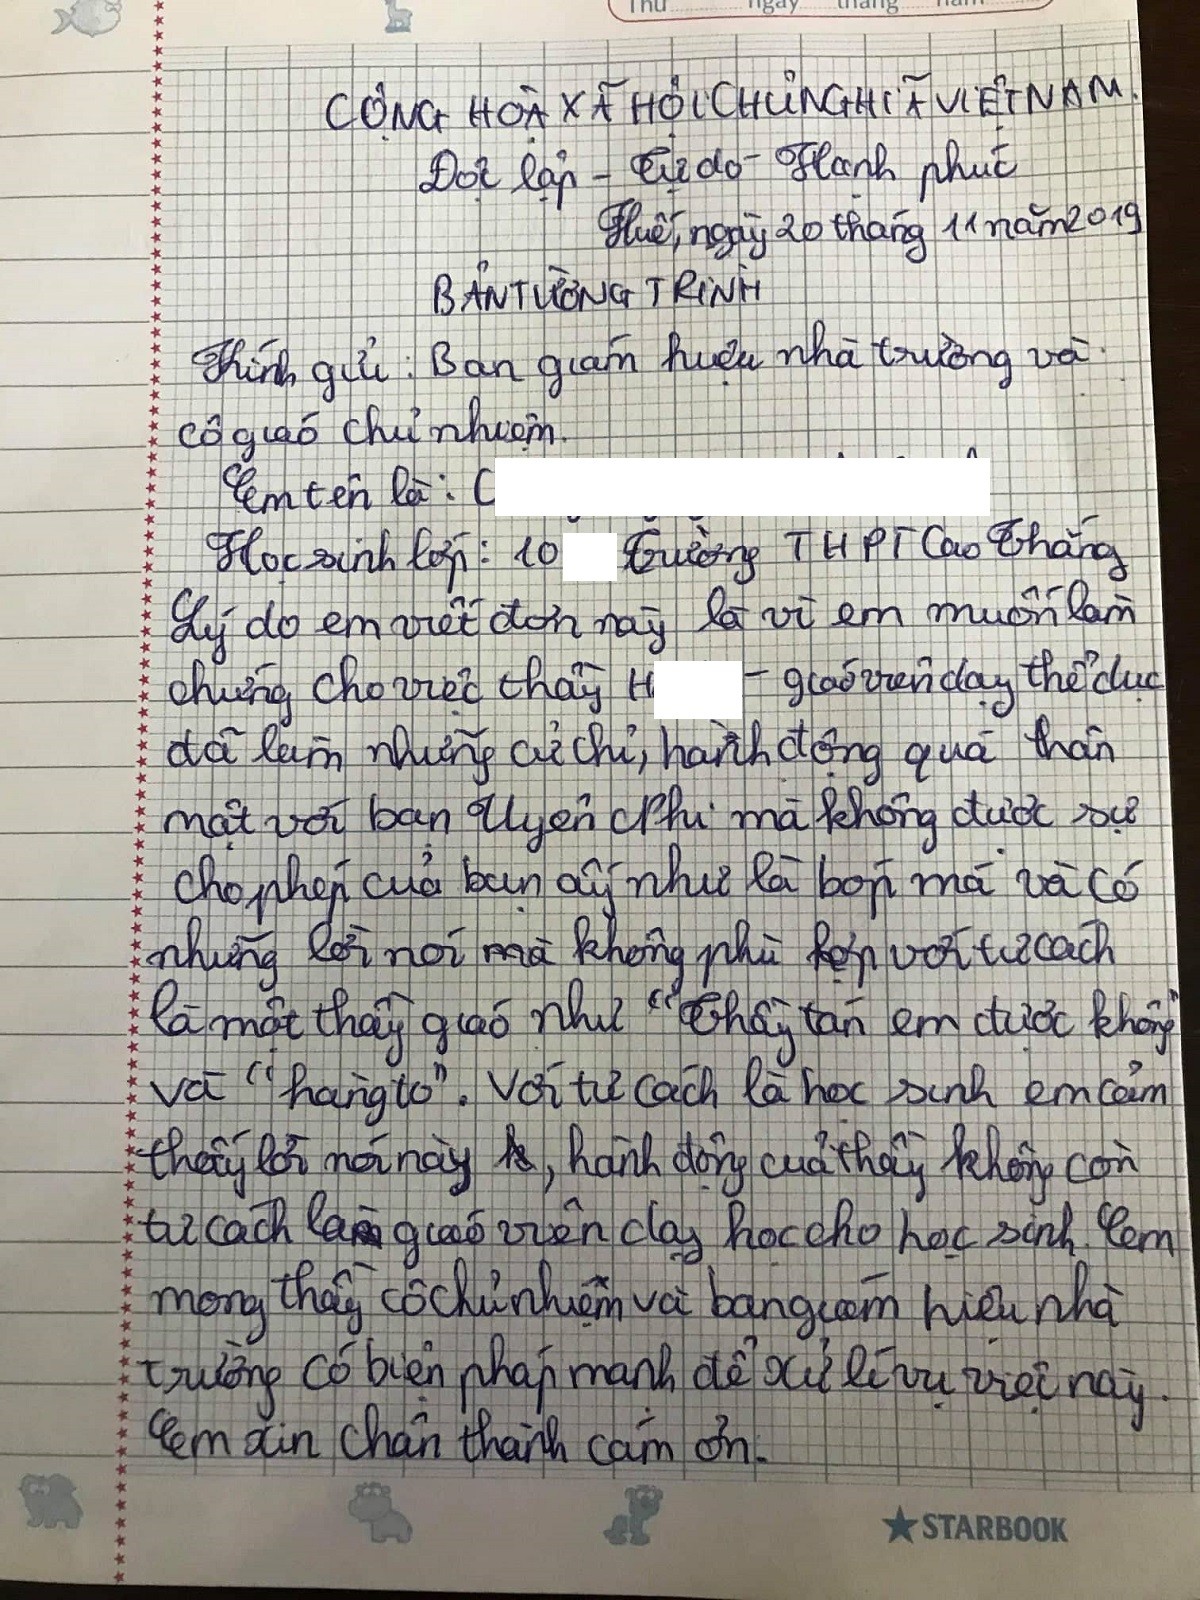 Thứ ngày tháng năm
CỘNG HOÀ XÃ HỘI CHỦ NGHĨA VIỆT NAM.
Độc lập - Tự do - Hạnh phúc
Huế, ngày 20 tháng 11 năm 2019
BẢN TƯỜNG TRÌNH
Kính gửi: Ban giám hiệu nhà trường và
cô giáo chủ nhiệm.
Em tên là: C
Học sinh lớp: 10 Trường THPT Cao Thắng
Lý do em viết đơn này là vì em muốn làm
chứng cho việc thầy H - giáo viên dạy thể dục
đã làm những cử chỉ, hành động quá thân
mật với bạn Uyên Nhi mà không được sự
cho phép của bạn ấy như là bóp má và có
những lời nói mà không phù hợp với tư cách
là một thầy giáo như "Thầy tán em được không"
và "hàng to". Với tư cách là học sinh em cảm
thấy lời nói này, hành động của thầy không còn
tư cách làm giáo viên dạy học cho học sinh. Em
mong thầy cô chủ nhiệm và ban giám hiệu nhà
trường có biện pháp mạnh để xử lí vụ việc này.
Em xin chân thành cảm ơn.
STARBOOK